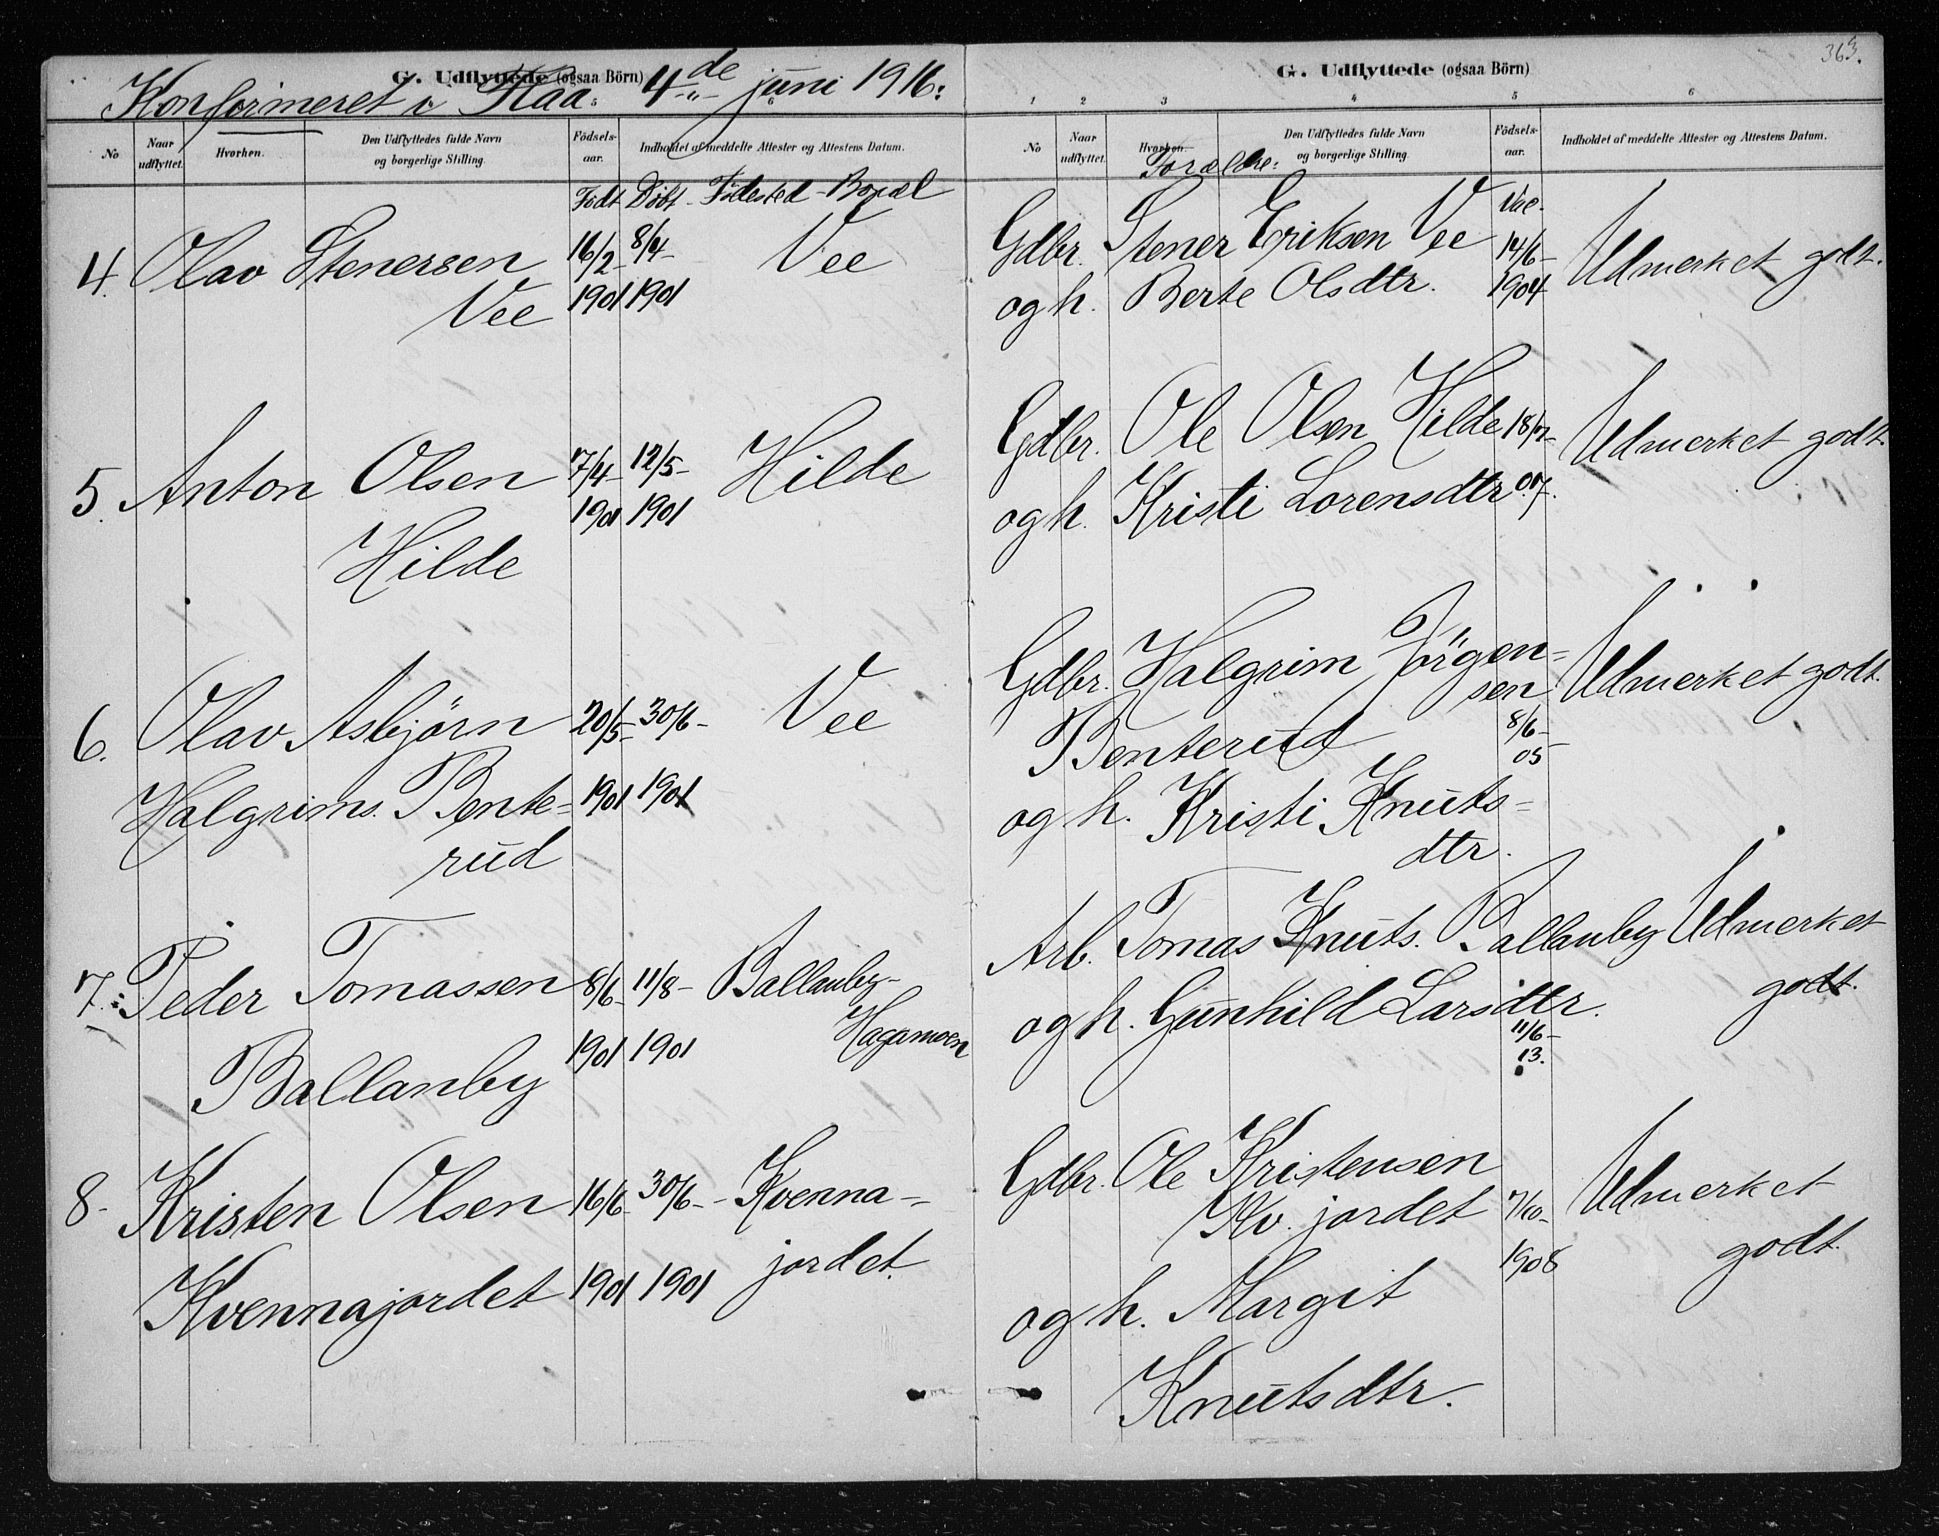 G. Udflyttede (ogsaa Börn)
Konfirmeret i Flaa 4de juni 1916:
No
Naar udflyttet.
Hvorhen.
Den Udflyttedes fulde Navn og borgerlige Stilling.
Fødsels-aar.
Indholdet af meddelte Attester og Attestens Datum.
Født Døbt - Fødested - Bopæl
4. Olav Stenersen 16/2- 8/4- Vee
Vee 1901 1901
5. Anton Olsen 7/4- 12/5- Hilde
1901 1901
Hilde
6. Olav Asbjörn 20/5- 30/6- Vee
Halgrims. Bente= 1901 1901
rud
7. Peder Tomassen 8/6- 11/8- Ballanby-
Hagamoen
Ballanby 1901 1901
8. Kristen Olsen 16/6- 30/6- Kvenna-
jordet.
Kvennajordet 1901 1901
363.
G. Udflyttede (ogsaa Börn)
1 2 3 4 5 6
No
Naar udflyttet.
Hvorhen.
Den Udflyttedes fulde Navn og borgerlige Stilling.
Fødsels-aar.
Indholdet af meddelte Attester og Attestens Datum.
Forældre: Vac.
Gdbr. Stener Eriksen Vee 14/6- Udmerket godt.
og h. Berte Olsdtr. 1904
Gdbr. Ole Olsen Hilde 18/7- Udmerket godt.
og h. Kristi Lorensdtr 07.
Gdbr. Halgrim Jörgen= Udmerket godt.
sen
Benterud 8/6-
05
og h. Kristi Knuts=
dtr.
Arb. Tomas Knuts. Ballanby Udmerket
godt.
og h. Gunhild Larsdtr.
11/6-
13.
Gdbr. Ole Kristensen Udmerket
Kv. jordet 7/10- godt.
1908
og h. Margit
Knutsdtr.